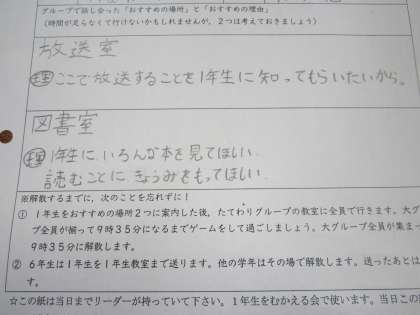 グループで話し合った「おすすめの場所」と「おすすめの理由」
(時間が足らなくて行けないかもしれませんが、2つは考えておきましょう)
放送室
理由 ここで放送することを1年生に知ってもらいたいから。
図書室
理由 1年生に、いろんな本を見てほしい。
読むことに、きょうみをもってほしい。
※解散するまでに、次のことを忘れずに!
① 1年生をおすすめの場所2つに案内した後、たてわりグループの教室に全員で行きます。大グ
プ全員が揃って9時35分になるまでゲームをして過ごしましょう。大グループ全員が集まっ
9時35分に解散します。
② 6年生は1年生を1年生教室まで送ります。他の学年はその場で解散します。送ったあとは
す。
☆この紙は当日までリーダーが持っていて下さい。1年生をむかえる会で使います。当日この